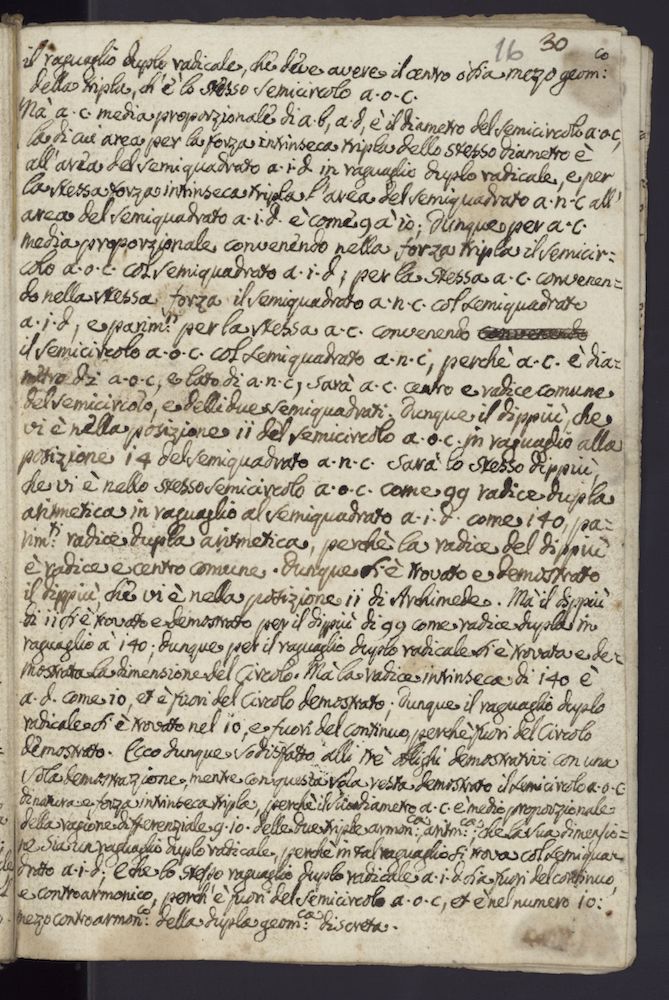 16 30
il raguaglio duplo radicale, che deve avere il centro ò sia mezo geom:co
della tripla, ch'è lo stesso semicircolo a·o·c.
Mà a·c· media proporzionale di a·b, a·d, è il diametro del semicircolo a·o·c,
la di cui area per la forza intrinseca tripla dello stesso diametro è
all'area del semiquadrato a·i·d in raguaglio duplo radicale, e per
la stessa forza intrinseca tripla l'area del semiquadrato a·n·c all'
area del semiquadrato a·i·d· è come 9 a' 10; Dunque per a·c·
media proporzionale convenendo nella forza tripla il semicir=
colo a·o·c· col semiquadrato a·i·d; per la stessa a·c· convenen=
do nella stessa forza il semiquadrato a·n·c· col semiquadrato
a·i·d, e parim.ti per la stessa a·c· convenendo
il semicircolo a·o·c· col semiquadrato a·n·c, perchè a·c· è dia=
metro di a·o·c, e lato di a·n·c, sarà a·c· centro e radice comune
del semicircolo, e delli due semiquadrati. Dunque il dippiù, che
vi è nella posizione 11 del semicircolo a·o·c· in raguaglio alla
posizione 14 del semiquadrato a·n·c· sarà lo stesso dippiù,
che vi è nello stesso semicircolo a·o·c· come 99 radice dupla
aritmetica in raguaglio al semiquadrato a·i·d· come 140, pa=
rim.ti radice dupla aritmetica, perchè la radice del dippiù
è radice e centro comune. Dunque si è trovato e demostrato
il dippiù che vi è nella posizione 11 di Archimede. Mà il dippiù
di 11 si è trovato e demostrato per il dippiù di 99 come radice dupla in
raguaglio à 140; dunque per il raguaglio duplo radicale si è trovata e de=
mostrata la dimensione del Circolo. Mà la radice intrinseca di 140 è
a·d· come 10, et è fuori del Circolo demostrato; Dunque il raguaglio duplo
radicale si è trovato nel 10, e fuori del continuo, perchè fuori del Circolo
demostrato. Ecco dunque sodisfatto alli trè oblighi demostrativi con una
sola demostrazione, mentre con questa sola resta demostrato il semicircolo a·o·c
di natura e forza intrinseca tripla, perchè il suo diametro a·c· è medio proporzionale
della ragione differenziale 9·10· delle due triple armon:ca, aritm:ca; che la sua dimensio=
ne sia un raguaglio duplo radicale, perchè in tal raguaglio si trova col semiqua=
drato a·i·d; e che lo stesso raguaglio duplo radicale a·i·d sia fuori del continuo,
e controarmonico, perch'è fuori del semicircolo a·o·c, et è nel numero 10:
mezo controarmon:co della dupla geom:ca discreta.